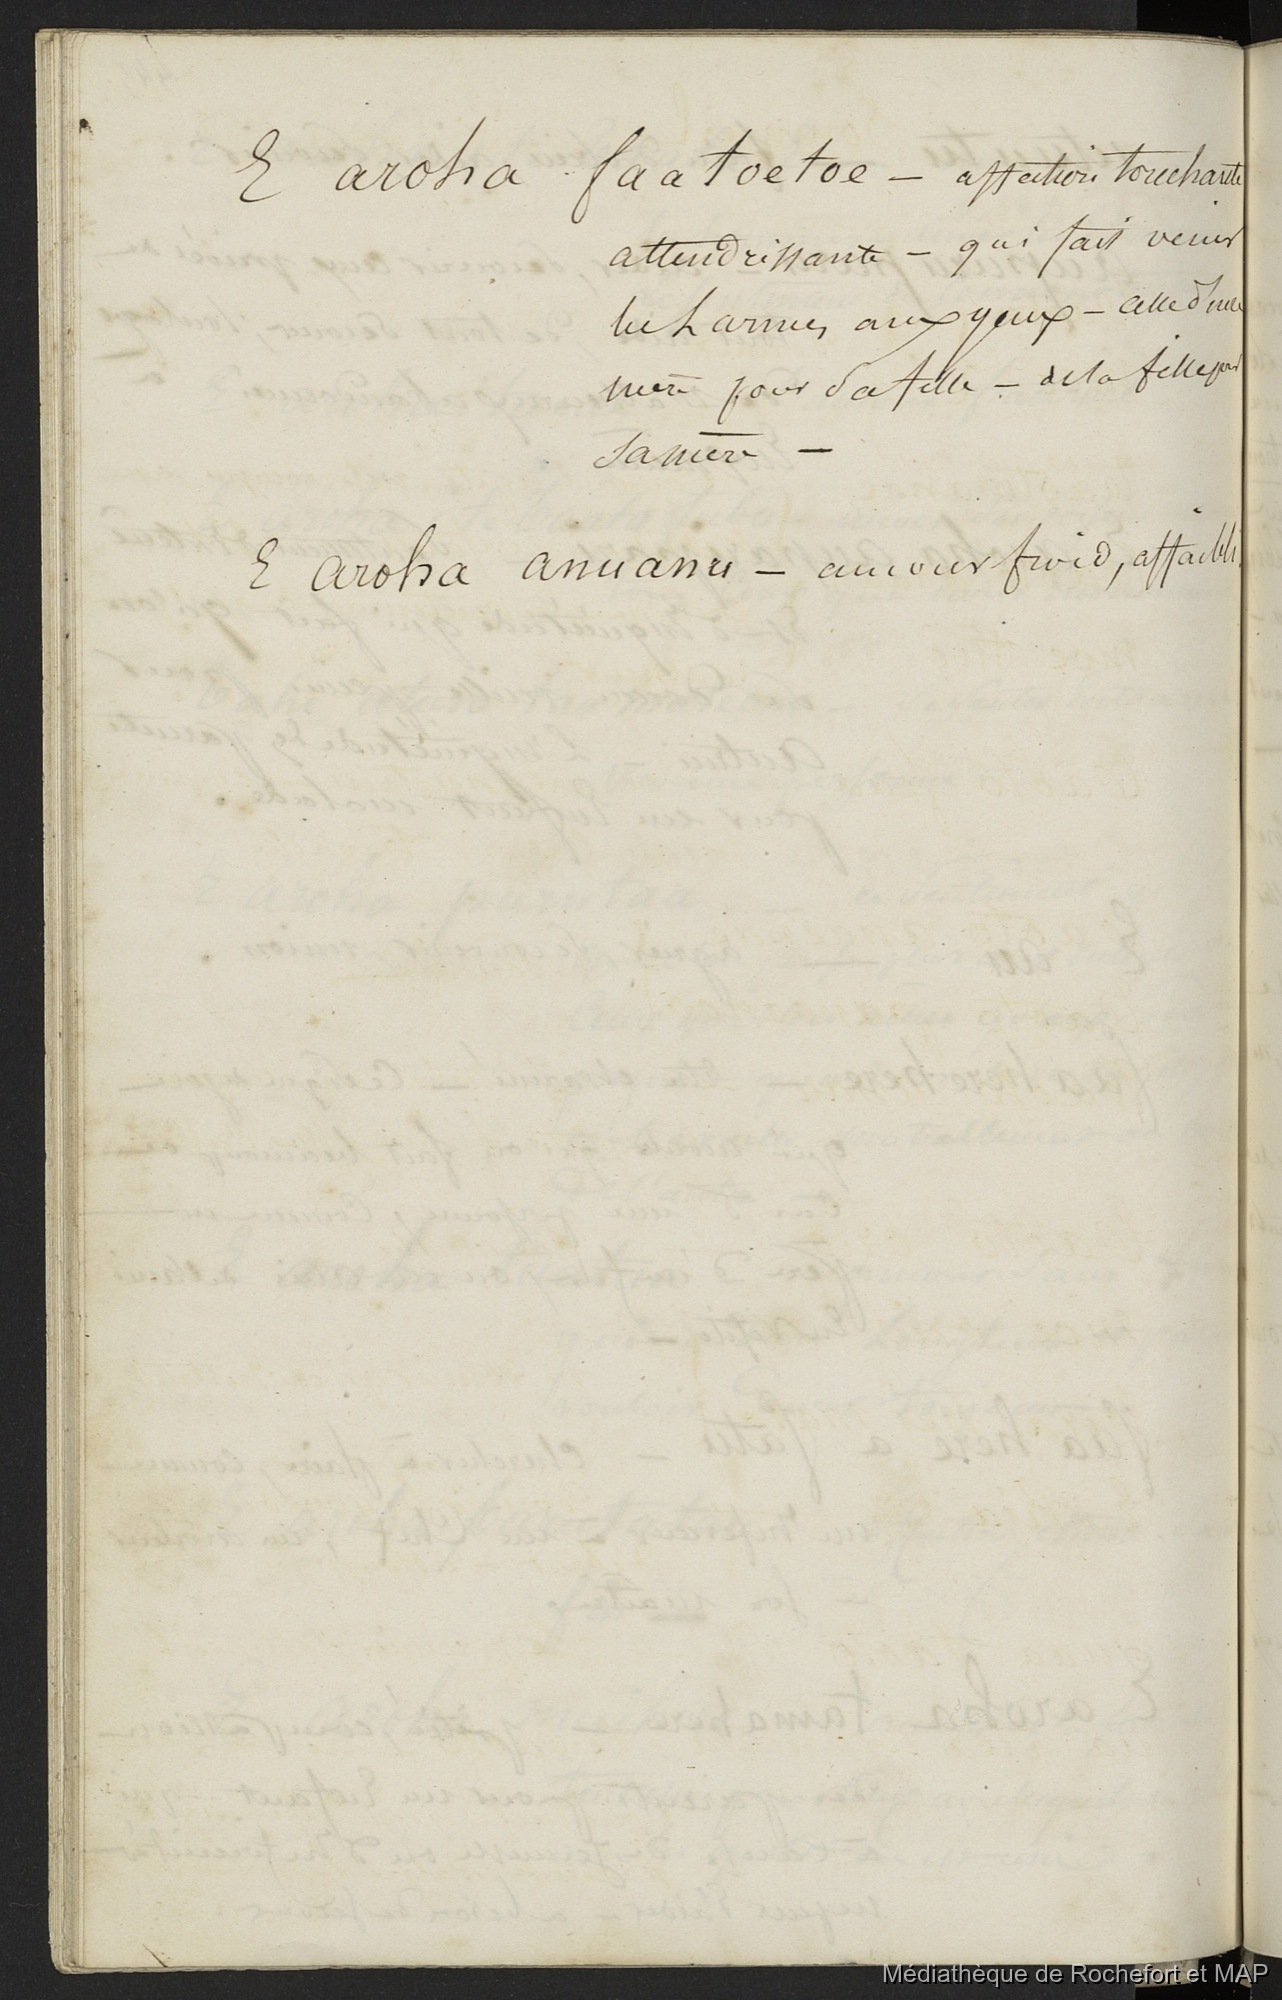 E aroha faatoetoe – affection touchante
attendrissante – qui fait venir
les larmes aux yeux – celle d'une
mère pour sa fille – de la fille pour
sa mère –
E aroha anuanu – amour froid, affaibli.
Médiathèque de Rochefort et MAP